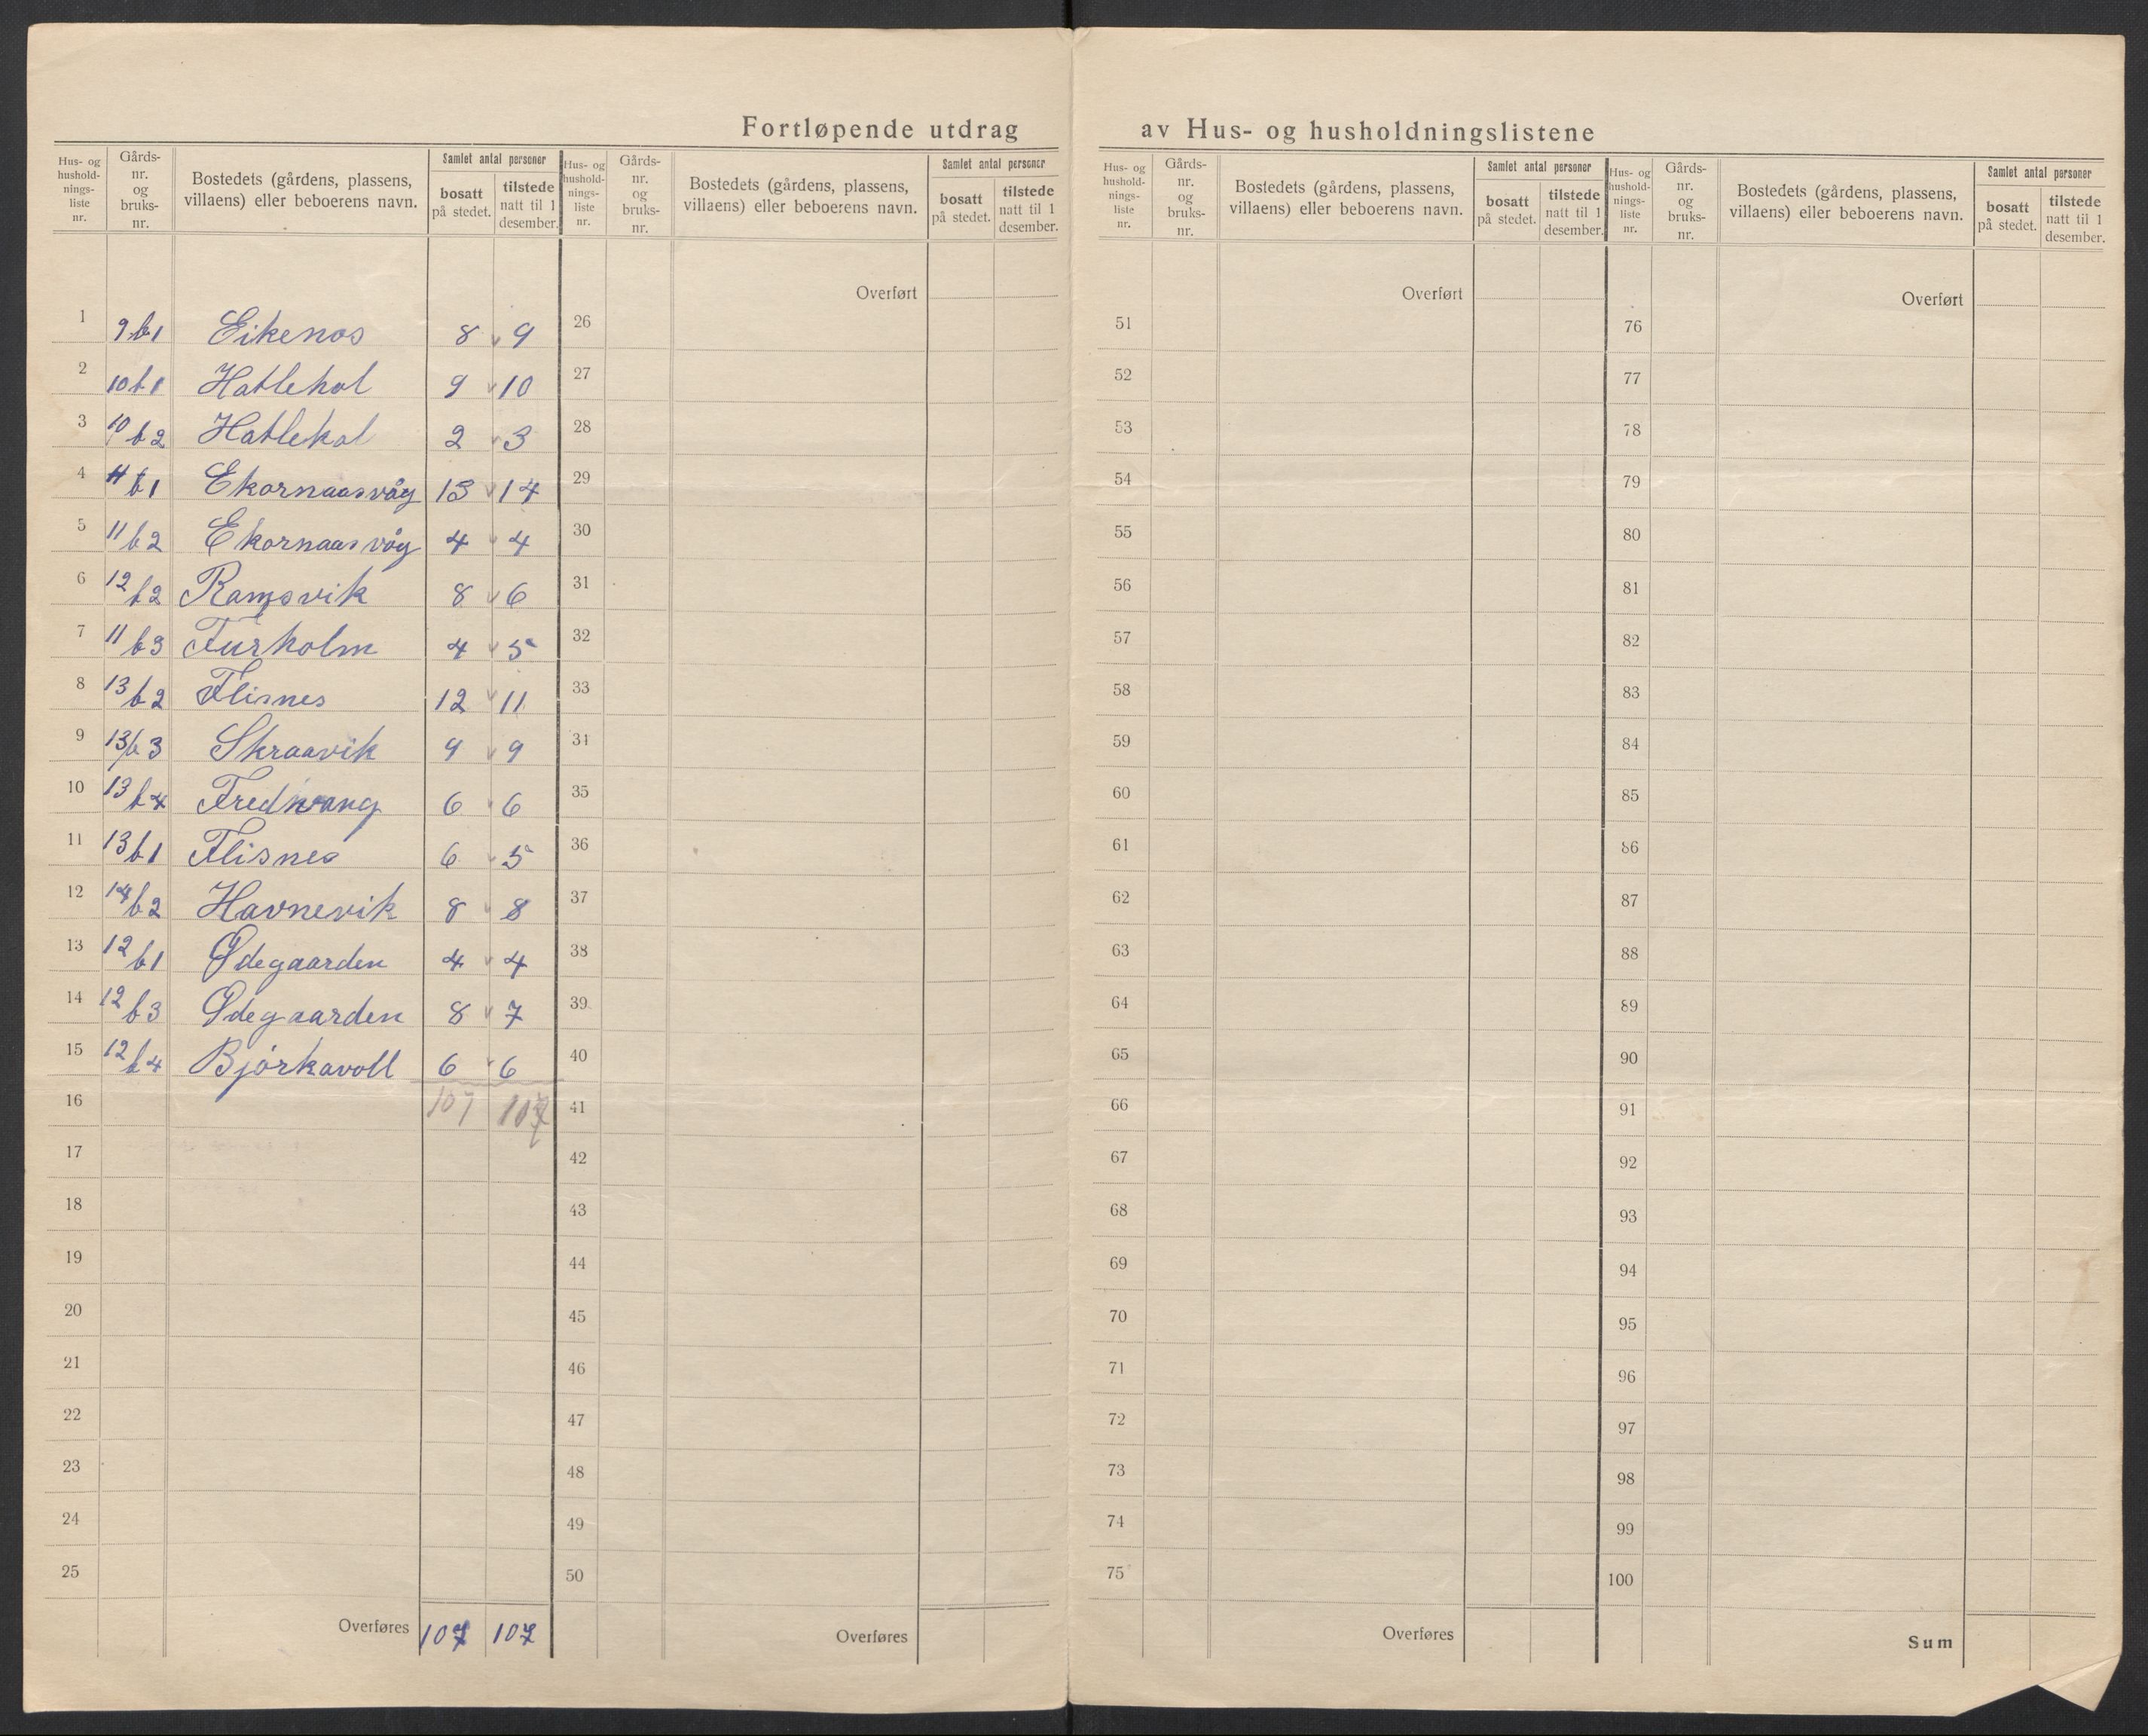 Fortløpende utdrag av Hus- og husholdningslistene
Hus- og hushold-nings-liste nr. Gårds-nr. og bruks-nr. Bostedets (gårdens, plassens, villaens) eller beboerens navn. Samlet antal personer bosatt på stedet. tilstede natt til 1 desember.
Hus- og hushold-nings-liste nr. Gårds-nr. og bruks-nr. Bostedets (gårdens, plassens, villaens) eller beboerens navn. Samlet antal personer bosatt på stedet. tilstede natt til 1 desember.
Hus- og hushold-nings-liste nr. Gårds-nr. og bruks-nr. Bostedets (gårdens, plassens, villaens) eller beboerens navn. Samlet antal personer bosatt på stedet. tilstede natt til 1 desember.
Hus- og hushold-nings-liste nr. Gårds-nr. og bruks-nr. Bostedets (gårdens, plassens, villaens) eller beboerens navn. Samlet antal personer bosatt på stedet. tilstede natt til 1 desember.
Overført Overført Overført
1 9 b1 Eikenos 8 v 9 26 51 76
2 10 b1 Hatlehol 9 v 10 27 52 77
3 10 b2 Hatlehol 2 v 3 28 53 78
4 11 b1 Ekornaasvåg 13 v 14 29 54 79
5 11 b2 Ekornaasvåg 4 v 4 30 55 80
6 12 b2 Ramsvik 8 v 6 31 56 81
7 11 b3 Furholm 4 v 5 32 57 82
8 13 b2 Flisnes 12 v 11 33 58 83
9 13/b3 Skraavik 9 v 9 34 59 84
10 13 b4 Fredvang 6 v 6 35 60 85
11 13 b1 Flisnes 6 v 5 36 61 86
12 14 b2 Havnevik 8 v 8 37 62 87
13 12 b1 Ødegaarden 4 v 4 38 63 88
14 12 b3 Ødegaarden 8 v 7 39 64 89
15 12 b4 Bjørkavoll 6 v 6 40 65 90
16 107 107 41 66 91
17 42 67 92
18 43 68 93
19 44 69 94
20 45 70 95
21 46 71 96
22 47 72 97
23 48 73 98
24 49 74 99
25 50 75 100
Overføres 107 107 Overføres Overføres Sum